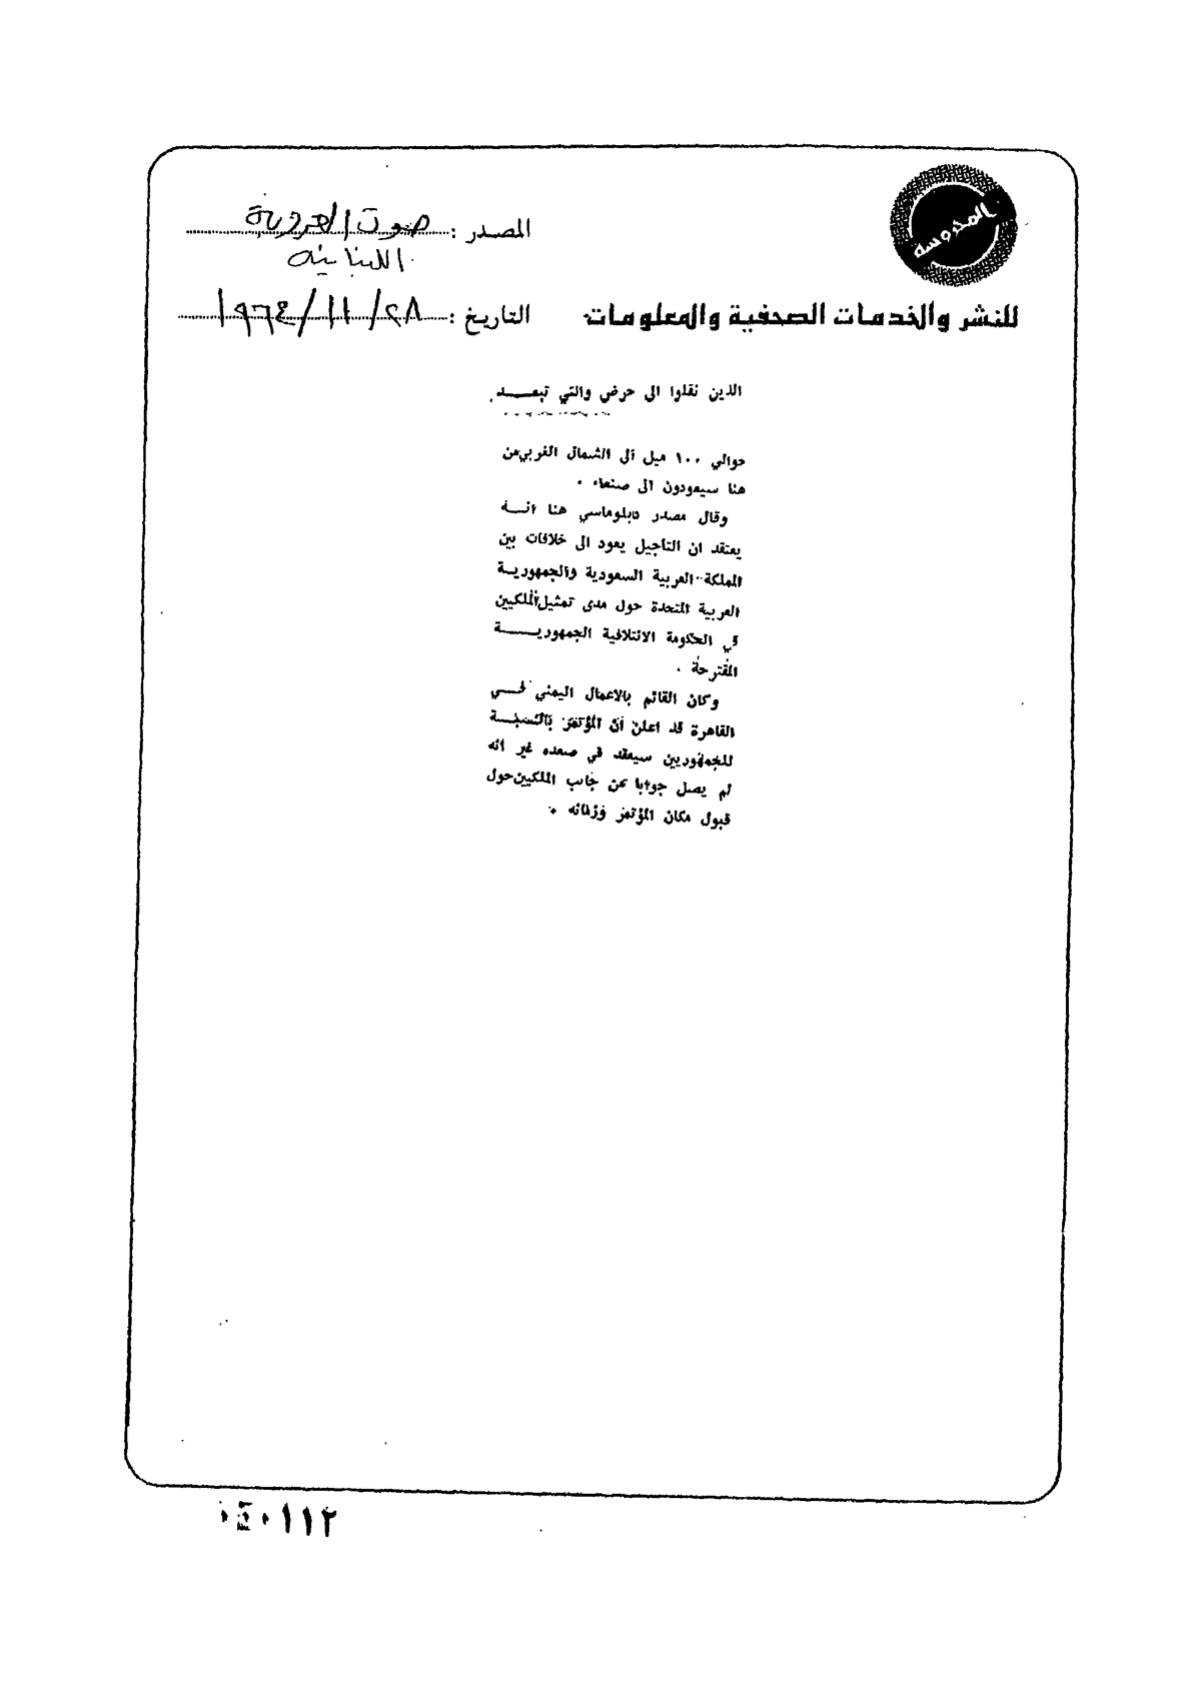 المحروسة
للنشر والخدمات الصحفية والمعلومات
المصدر : صوت العروبة
اللبنانية
التاريخ : ٢٨/١١/١٩٦٤
الذين نقلوا الى حرض والتي تبعـــد
حوالي ١٠٠ ميل الى الشمال الغربي من
هنا سيعودون الى صنعاء .
وقال مصدر دبلوماسي هنا انــه
يعتقد ان التأجيل يعود الى خلافات بين
المملكة العربية السعودية والجمهوريــة
العربية المتحدة حول مدى تمثيل الملكيين
في الحكومة الائتلافية الجمهوريـــــة
المقترحة .
وكان القائم بالاعمال اليمني فـــي
القاهرة قد اعلن ان المؤتمر بالنسبــة
للجمهوريين سيعقد في صعده غير انه
لم يصل جوابا من جانب الملكيين حول
قبول مكان المؤتمر وزمانه .